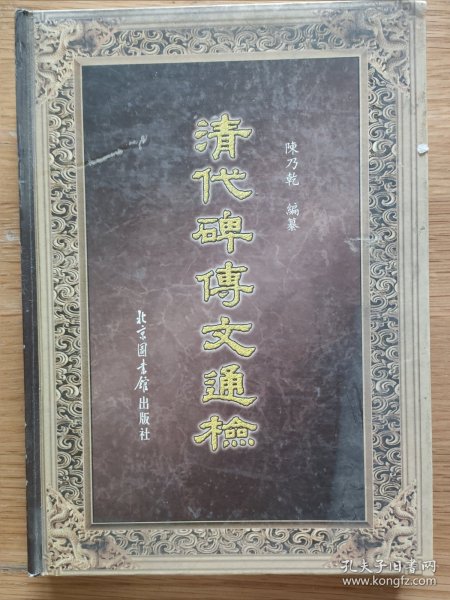 陳乃乾 編纂
清代碑傳文通檢
北京圖書館出版社
孔夫子旧书网
www.kongfz.com